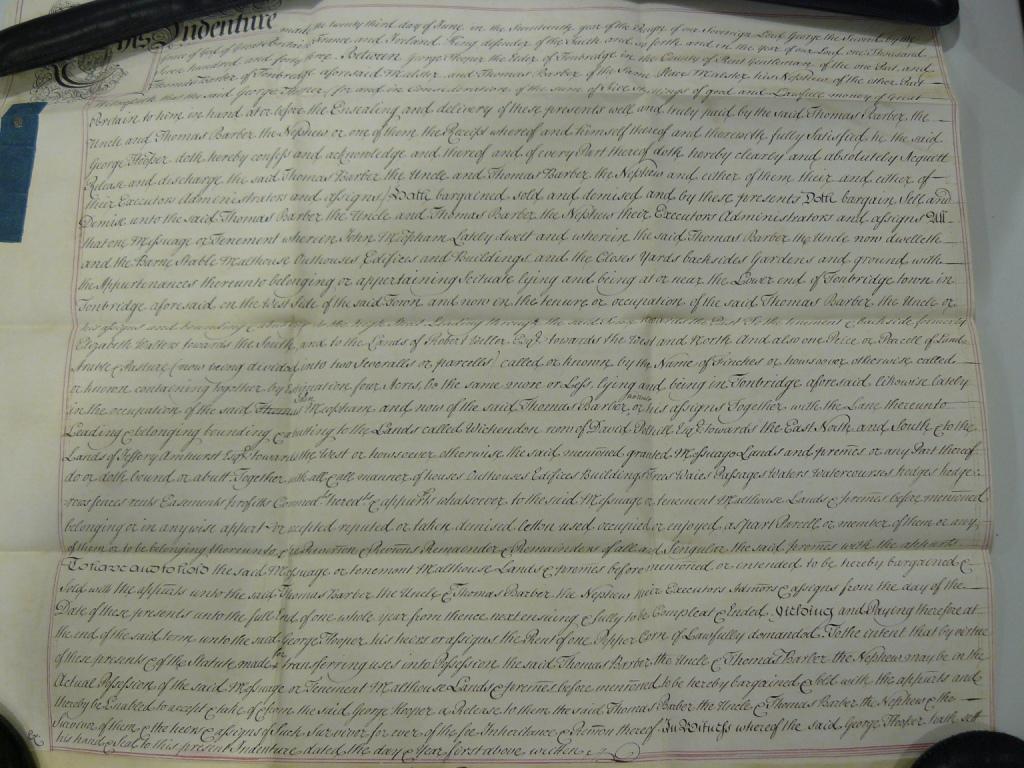 This Indenture made the twenty third day of June in the Seventeenth year of the Reign of our Sovereign Lord George the Second by the
Grace of God of Great Britain France and Ireland King defender of the Faith and so forth and in the year of our Lord one Thousand
Seven hundred and forty three Between George Hooper the Elder of Tonbridge in the County of Kent Gentleman of the one Part and
Thomas Barber of Tonbridge aforesaid Malster and Thomas Barber of the Same Place Malster his Nephew of the other Part
Witnesseth that the said George Hooper for and in Consideration of the sume of Five Shillings of good and Lawfull money of Great
Britain to him in hand att or before the Ensealing and delivery of these presents well and truly paid by the said Thomas Barber the
Uncle and Thomas Barber the Nephew or one of them the Receipt whereof and himself thereof and therewith fully Satisfied he the said
George Hooper doth hereby confess and acknowledge and thereof and of every Part thereof doth hereby clearly and absolutely Acquitt
Release and discharge the said Thomas Barber the Uncle and Thomas Barber the Nephew and either of them their and either of
their Executors Administrators and assigns Hath bargained sold and demised and by these presents Doth bargain Sell and
Demise unto the said Thomas Barber the Uncle and Thomas Barber the Nephew their Executors Administrators and assigns All
that one Messuage or Tenement wherein John Meopham Lately dwelt and wherein the said Thomas Barber the Uncle now dwelleth
and the Barne Stable Malthouse Outhouses Edifices and Buildings and the Closes Yards backsides Gardens and ground with
the Appurtenances thereunto belonging or appertaining Scituate lying and being at or near the Lower end of Tonbridge town in
Tonbridge aforesaid on the West Side of the said Town and now in the tenure or occupation of the said Thomas Barber the Uncle or
his assigns and bounding & abutting to the high Street Leading through the said Town towards the East To the tenement & backside formerly
Elizabeth Walters towards the South and to the Lands of Robert Weller Esqr. towards the West and North And also one Peice or Parcell of Land
Arable & Pasture (now being divided into two Severalls or parcells) called or known by the Name of Finches or howsoever otherwise called
or known containing together by Estimation four Acres be the same more or Less lying and being in Tonbridge aforesaid likewise lately
in the occupation of the said John Meopham and now of the said Thomas Barber the Uncle or his assigns Together with the Lane thereunto
Leading & belonging bounding & abutting to the Lands called Wichendon now of David Polhill Esqr. towards the East North and South & to the
Lands of Jeffery Amhurst Esqr. towards the West or howsoever otherwise the said mentioned granted Messuage Lands and premes or any Part thereof
do or doth bound or abutt Together with all & all manner of houses Outhouses Edifices Buildings Trees Waies Passages Waters Watercourses hedges hedge
rows fences Easements profitts Commods heredts & appurts whatsoever to the said Messuage or tenement Malthouse Lands & premes before mentioned
belonging or in anywise appurt or accepted reputed or taken demised letten used occupied or enjoyed as part Parcell or member of them or any
of them or to be belonging thereunto & the Reversion & Revercons Remaender & Remainders of all and Singular the said premes with the appurts
To have and to hold the said Messuage or tenement Malthouse Lands & premes before mentioned or intended to be hereby bargained &
Sold with the appurts unto the said Thomas Barber the Uncle & Thomas Barber the Nephew their Executors Admtors & assigns from the day of the
Date of these presents unto the full End of one whole year from thence next ensuing & fully to be Compleat & Ended Yielding and Paying therefore at
the end of the said term unto the said George Hooper his heirs or assigns the Rent of one Pepper Corn if Lawfully demanded To the intent that by virtue
of these presents & of the Statute made for transferring uses into Possession the said Thomas Barber the Uncle & Thomas Barber the Nephew may be in the
Actual Possession of the said Messuage or Tenement Malthouse Lands & premes before mentioned to be hereby bargained & Sold with the appurts and
thereby be Enabled to accept & take of & from the said George Hooper a Release to them the said Thomas Barber the Uncle & Thomas Barber the Nephew & the
Survivor of them & the heirs & assigns of Such Survivor for ever of the fee Inheritance & Revercon thereof In Witness whereof the said George Hooper hath set
his hand & Seal to this present Indenture dated the day & Year first above written